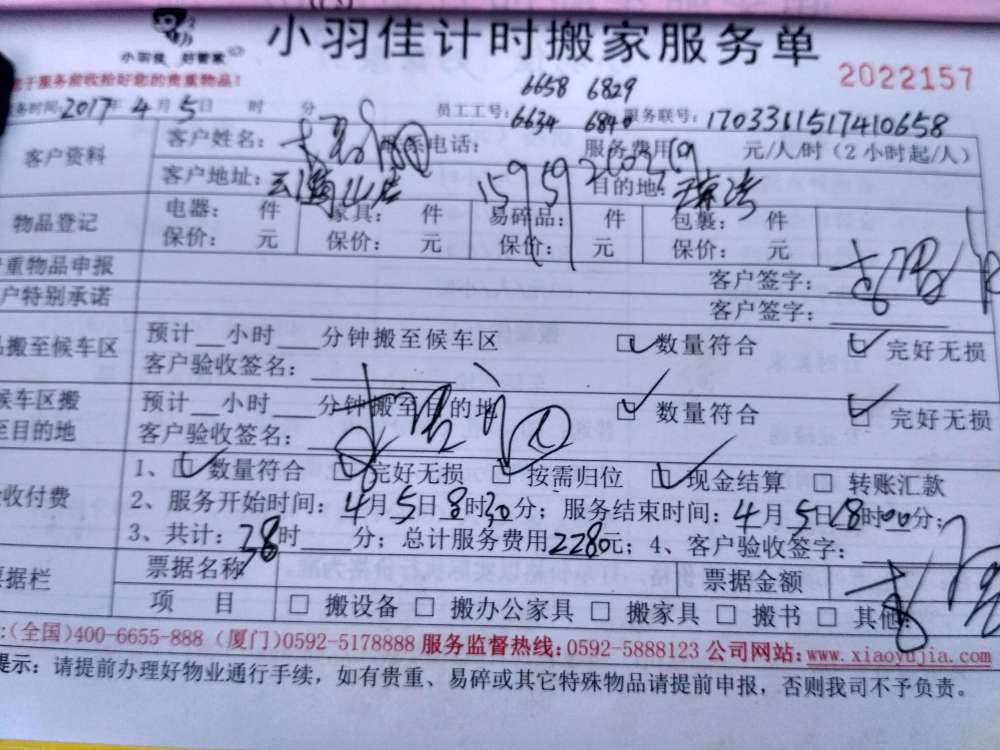 小羽佳 好管家
小羽佳计时搬家服务单
于服务前收拾好您的贵重物品!
2022157
6658 6829
务时间:2017年4月5日 时 分 员工工号: 6634 6840 服务联号: 1703361517410658
客户资料 客户姓名: 联系电话: 服务费用 元/人/时(2小时起/人)
客户地址: 目的地:
物品登记 电器: 件 家具: 件 易碎品: 件 包裹: 件
保价: 元 保价: 元 保价: 元 保价: 元
重物品申报 客户签字:
户特别承诺 客户签字:
品搬至候车区 预计__小时___分钟搬至候车区 数量符合 完好无损
客户验收签名:
候车区搬至目的地 预计__小时___分钟搬至目的地 数量符合 完好无损
客户验收签名:
收付费 1、 数量符合 完好无损 按需归位 现金结算 转账汇款
2、服务开始时间: 4月5日8时30分; 服务结束时间: 4月5日18时00分;
3、共计: 38时___分; 总计服务费用2280元; 4、客户验收签字:
票据栏 票据名称 票据金额
项 目 □ 搬设备 □ 搬办公家具 □ 搬家具 □ 搬书 □ 其他:
:(全国)400-6655-888 (厦门)0592-5178888 服务监督热线:0592-5888123 公司网站:www.xiaoyujia.com
提示: 请提前办理好物业通行手续, 如有贵重、易碎或其它特殊物品请提前申报, 否则我司不予负责。